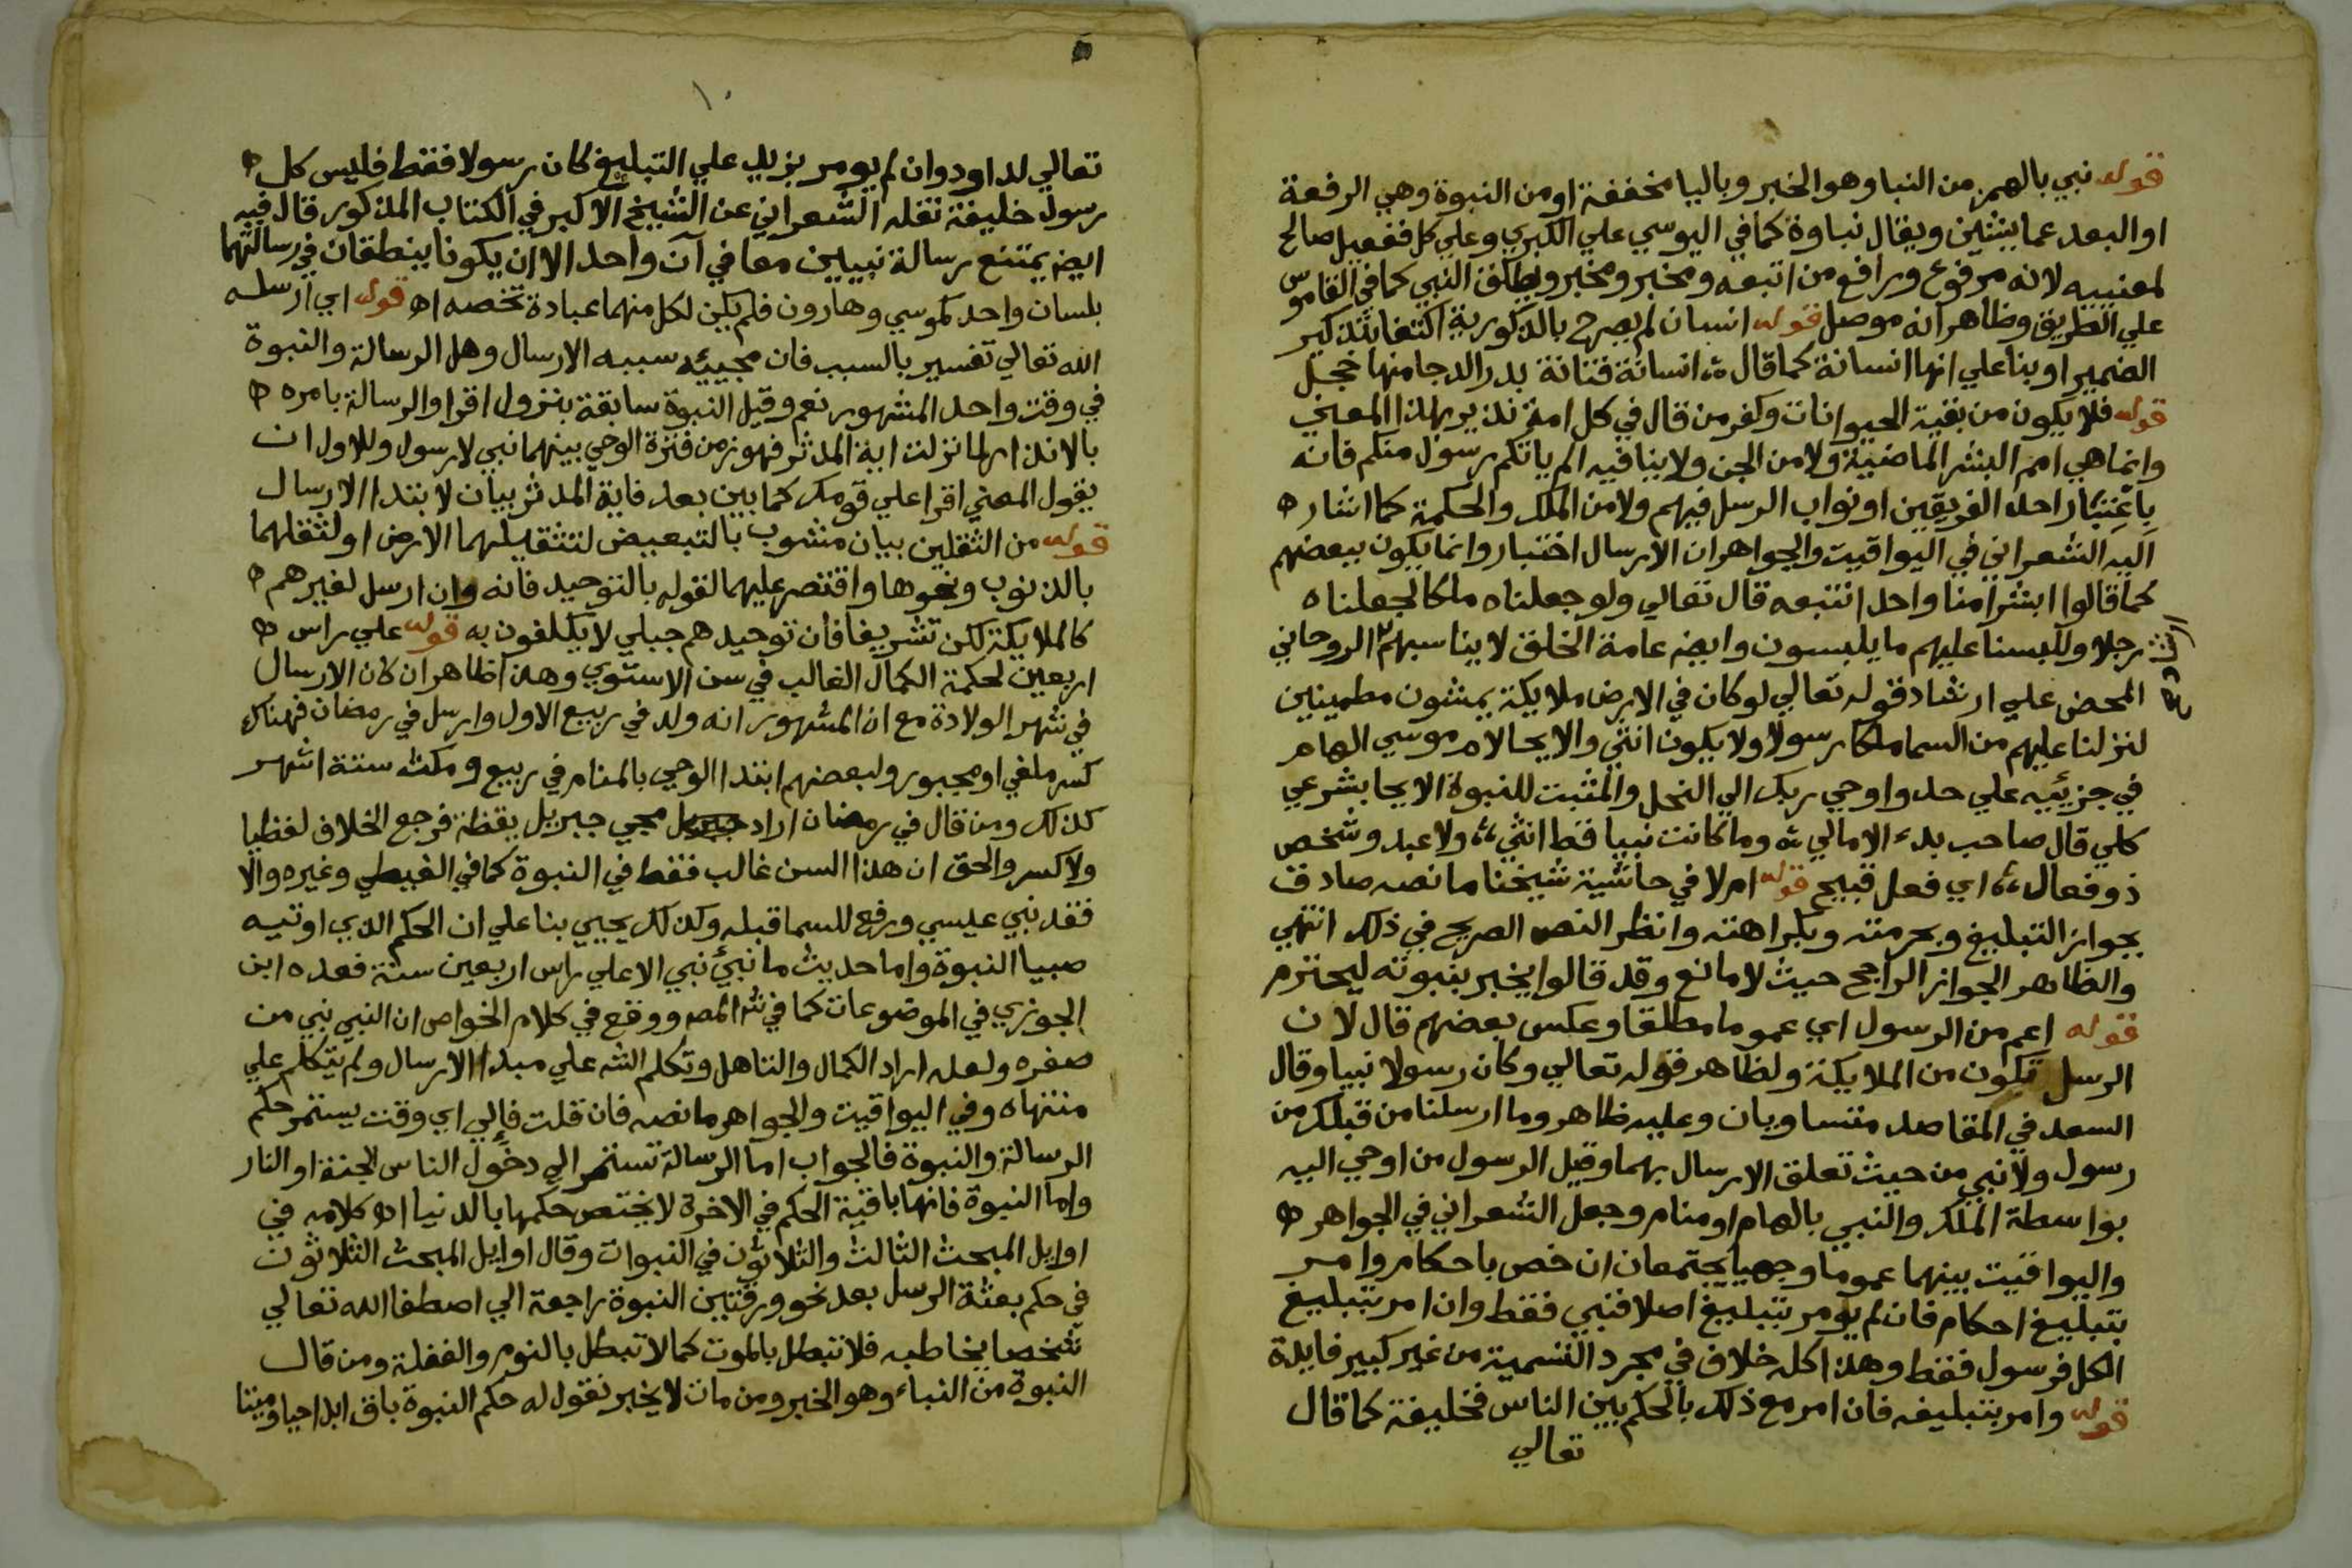 قوله نبي بالهمز من النبا وهو الخبر وباليا مخففة او من النبوة وهي الرفعة
او البعد عما يشين ويقال نباوة كما في اليوسي علي الكبري وعلي كل ففعيل صالح
لمعنييه لانه مرفوع ورافع من اتبعه ومخبر ومخبر ويطلق النبي كما في القاموس
علي الطريق وظاهر انه موصل قوله انسان لم يصرح بالذكورية اكتفا بتذكير
الضمير او بنا علي انها انسانة كما قال ث انسانة فتانة بدر الدجا منها خجل
قوله فلا يكون من بقية الحيوانات وكفر من قال في كل امة نذير بهذا المعني
وانما هي امم البشر الماضية ولا من الجن ولا ينافيه الم ياتكم رسول منكم فانه
باعتبار احد الفريقين او نواب الرسل فيهم ولا من الملك والحكمة كما اشار ه
اليه الشعراني في اليواقيت والجواهر ان الارسال اختبار وانما يكون ببعضهم
كما قالوا ابشرا منا واحدا نتبعه قال تعالي ولو جعلناه ملكا لجعلناه
رجلا وللبسنا عليهم ما يلبسون وايض عامة الخلق لا يناسبهم الروحاني
المحض علي ارشاد قوله تعالي لو كان في الارض ملايكة يمشون مطمينين
لنزلنا عليهم من السما ملكا رسولا ولا يكون انثي والايحا لام موسي الهام
في جزئيه علي حد واوحي ربك الي النحل والمثبت للنبوة الايحا بشرعي
كلي قال صاحب بدء الامالي ث وما كانت نبيا قط انثي ،، ولا عبد وشخص
ذو فعال ،، اي فعل قبيح قوله ام لا في حاشية شيخنا ما نصه صادق
بجواز التبليغ وبحرمته وبكراهته وانظر النص الصريح في ذلك انتهي
والظاهر الجواز الراجح حيث لا مانع وقد قالوا يخبر بنبوته ليحترم
قوله اعم من الرسول اي عموما مطلقا وعكس بعضهم قال لان
الرسل تكون من الملايكة ولظاهر قوله تعالي وكان رسولا نبيا وقال
السعد في المقاصد متساويان وعليه ظاهر وما ارسلنا من قبلك من
رسول ولا نبي من حيث تعلق الارسال بهما وقيل الرسول من اوحي اليه
بواسطة الملك والنبي بالهام او منام وجعل الشعراني في الجواهر ه
واليواقيت بينهما عموما وجهيا يجتمعان ان خص باحكام وامر
بتبليغ احكام فان لم يومر بتبليغ اصلا فنبي فقط وان امر بتبليغ
الكل فرسول فقط وهذا كله خلاف في مجرد التسمية من غير كبير فايدة
قوله وامر بتبليغه فان امر مع ذلك بالحكم بين الناس فخليفة كما قال
تعالي
١٠
تعالي لداود وان لم يومر بزيد علي التبليغ كان رسولا فقط فليس كل ه
رسول خليفة نقله الشعراني عن الشيخ الاكبر في الكتاب المذكور قال فيه
ايض يمتنع رسالة نبيين معا في آن واحد الا ان يكونا ينطقان في رسالتهما
بلسان واحد كموسي وهارون فلم يكن لكل منهما عبادة تخصه اه قوله اي ارسله
الله تعالي تفسير بالسبب فان مجيئه سببه الارسال وهل الرسالة والنبوة
في وقت واحد المشهور نعم وقيل النبوة سابقة بنزول اقرا والرسالة بامره ه
بالانذار لما نزلت اية المدثر فهو زمن فترة الوحي بينهما نبي لا رسول وللاول ان
يقول المعني اقرا علي قومك كما بين بعد فاية المدثر بيان لا بتدا الارسال
قوله من الثقلين بيان مشوب بالتبعيض لتثقيلهما الارض او لثقلهما
بالذنوب ونحوها واقتصر عليهما لقوله بالتوحيد فانه وان ارسل لغيرهم ه
كالملايكة لكن تشريفا فان توحيدهم جبلي لا يكلفون به قوله علي راس ه
اربعين لحكمة الكمال الغالب في سن الاستوي وهذا ظاهر ان كان الارسال
في شهر الولادة مع ان المشهور انه ولد في ربيع الاول وارسل في رمضان فهناك
كسر ملغي او مجبور ولبعضهم ابتدا الوحي بالمنام في ربيع ومكث ستة اشهر
كذلك ومن قال في رمضان اراد مجي جبريل يقظة فرجع الخلاف لفظيا
ولا كسر والحق ان هذا السن غالب فقط في النبوة كما في الغيطي وغيره والا
فقد نبي عيسي ورفع للسما قبله وكذلك يحيي بنا علي ان الحكم الذي اوتيه
صبيا النبوة واما حديث ما نبئ نبي الا علي راس اربعين سنة فعده ابن
الجوزي في الموضوعات كما في ش المص ووقع في كلام الخواص ان النبي نبي من
صغره ولعله اراد الكمال والتاهل وتكلم الش علي مبدا الارسال ولم يتكلم علي
منتهاه وفي اليواقيت والجواهر ما نصه فان قلت فالي اي وقت يستمر حكم
الرسالة والنبوة فالجواب اما الرسالة تستمر الي دخول الناس الجنة او النار
واما النبوة فانها باقية الحكم في الاخرة لا يختص حكمها بالدنيا اه كلامه في
اوايل المبحث الثالث والثلاثون في النبوات وقال اوايل المبحث الثلاثون
في حكم بعثة الرسل بعد نحو ورقتين النبوة راجعة الي اصطفا الله تعالي
شخصا يخاطبه فلا تبطل بالموت كما لا تبطل بالنوم والغفلة ومن قال
النبوة من النباء وهو الخبر ومن مات لا يخبر نقول له حكم النبوة باق ابدا حيا وميتا